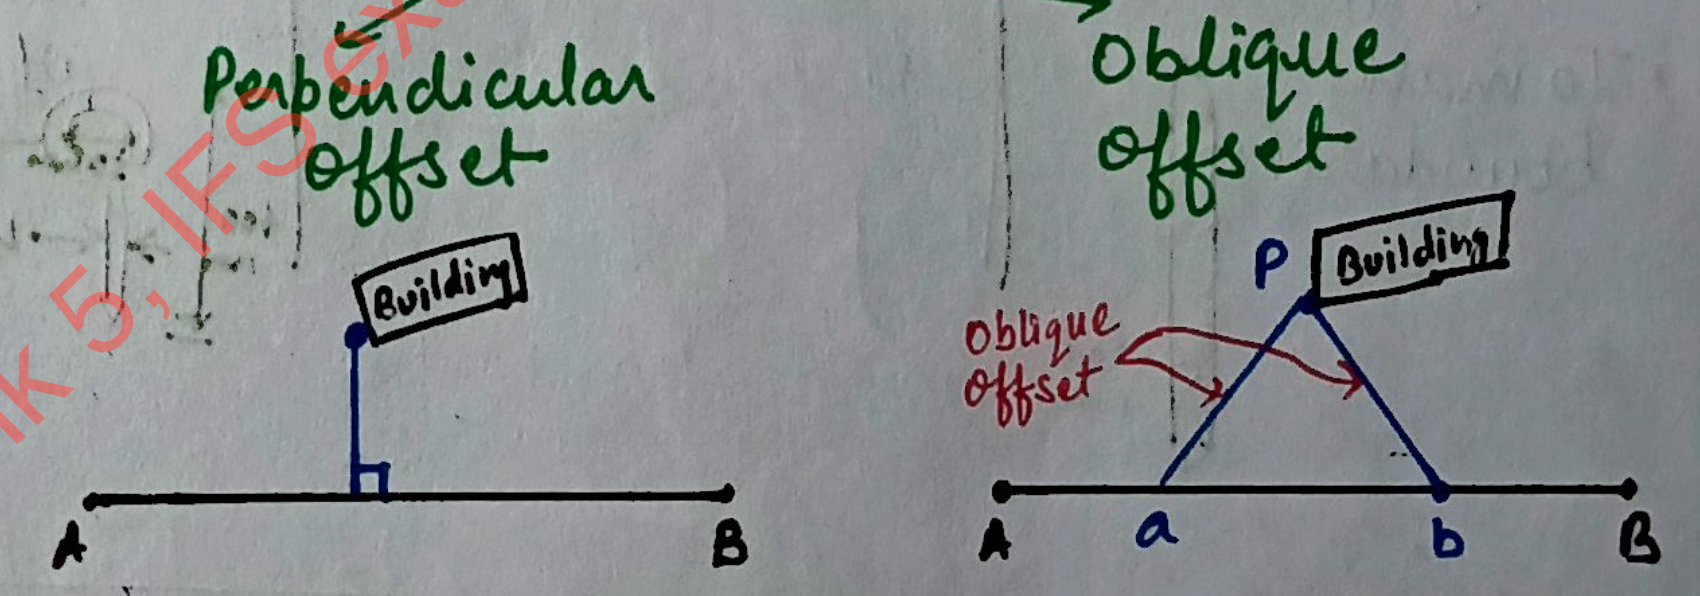 Perpendicular
Offset
Building
A
B
Oblique
Offset
P
Building
Oblique
Offset
A
a
b
B
5, IFS